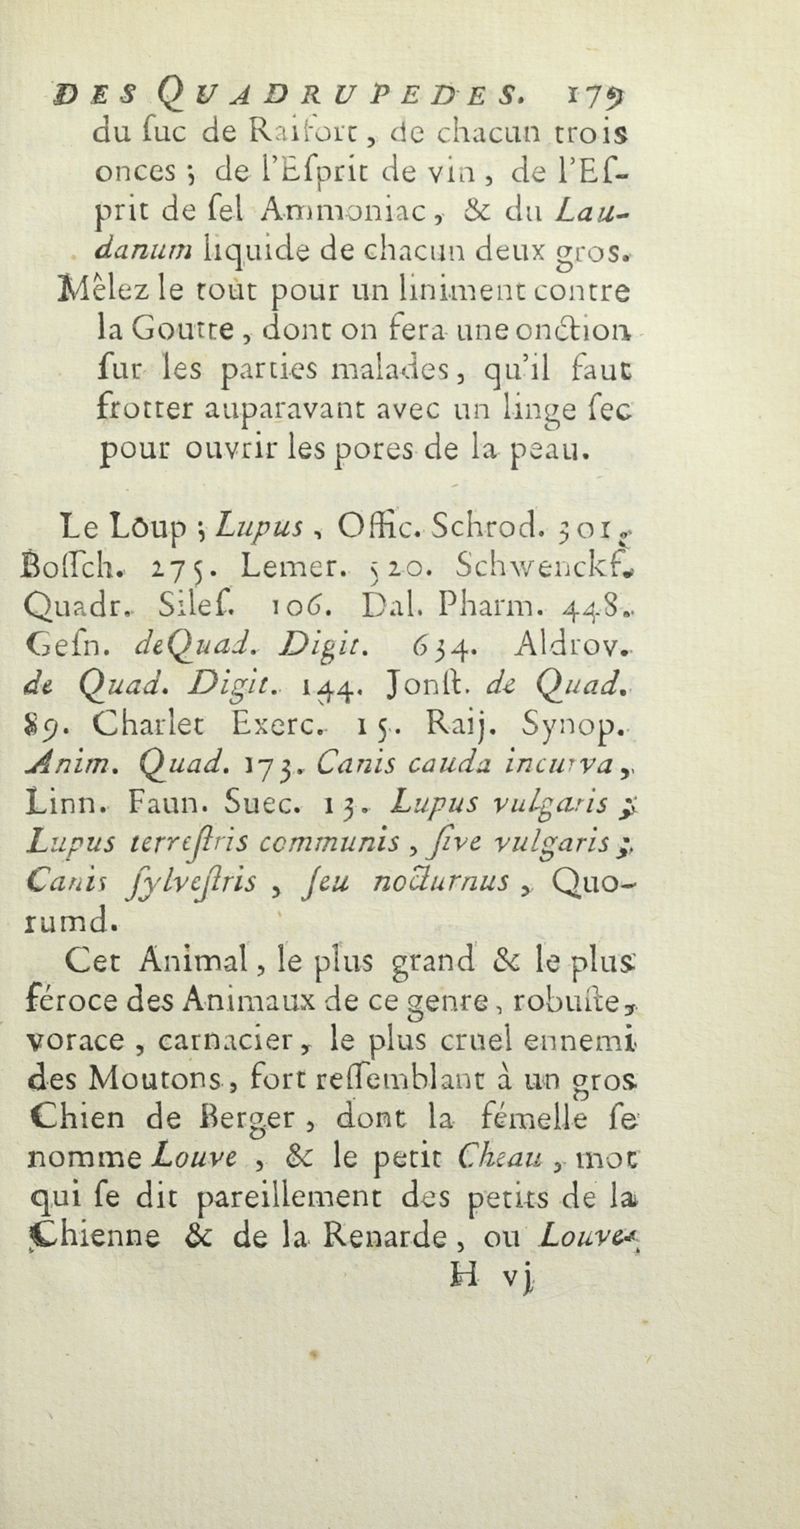 DES QUADRUPEDES. 179
du ſuc de Raifort, de chacun trois
onces ; de l'Eſprit de vin, de l'Eſ-
prit de ſel Ammoniac, & du Lau-
danum liquide de chacun deux gros.
Mêlez le tout pour un liniment contre
la Goutte, dont on fera une onction
ſur les parties malades, qu'il faut
frotter auparavant avec un linge ſec
pour ouvrir les pores de la peau.

Le Lôup ; Lupus, Offic. Schrod. 301.
Boſſch. 275. Lemer. 520. Schwenckf.
Quadr. Sileſ. 106. Dal. Pharm. 448.
Geſn. de Quad. Digit. 634. Aldrov.
de Quad. Digit. 144. Jonſt. de Quad.
89. Charlet Exerc. 15. Raij. Synop.
Anim. Quad. 173. Canis cauda incurva,
Linn. Faun. Suec. 13. Lupus vulgaris ;
Lupus terreſtris communis, ſive vulgaris ;
Canis ſylveſtris, ſeu nocturnus, Quo-
rumd.
Cet Animal, le plus grand & le plus
féroce des Animaux de ce genre, robuſte,
vorace, carnacier, le plus cruel ennemi
des Moutons, fort reſſemblant à un gros
Chien de Berger, dont la fémelle ſe
nomme Louve, & le petit Cheau, mot
qui ſe dit pareillement des petits de la
Chienne & de la Renarde, ou Louve-
H vj